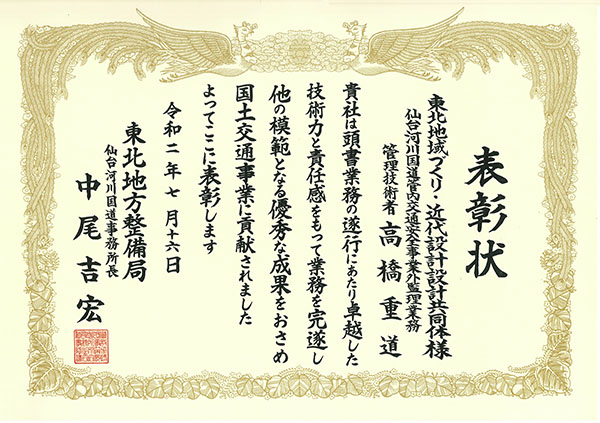 表彰状
東北地域づくり・近代設計設計共同体様
仙台河川国道管内交通安全事業外監理業務
管理技術者 高橋重道
貴社は頭書業務の遂行にあたり卓越した
技術力と責任感をもって業務を完遂し
他の模範となる優秀な成果をおさめ
国土交通事業に貢献されました
よってここに表彰します
令和二年七月十六日
東北地方整備局
仙台河川国道事務所長
中尾吉宏